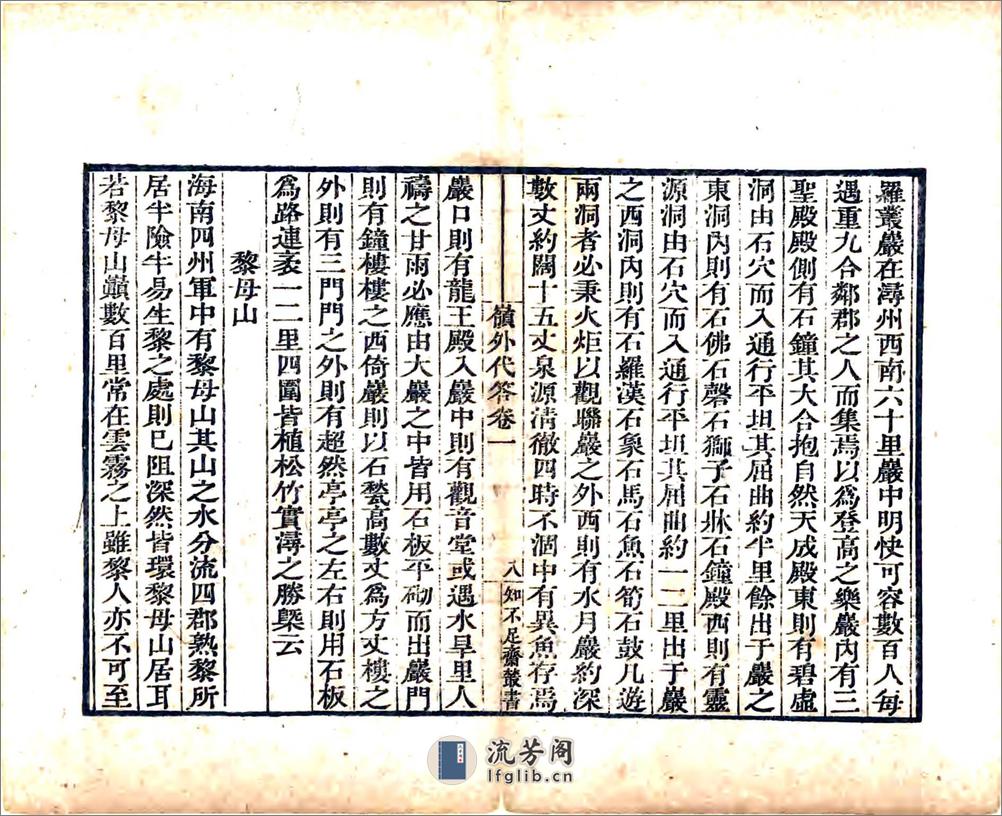 羅叢巖在潯州西南六十里巖中明快可容數百人每
遇重九合鄰郡之人而集焉以爲登高之樂巖內有三
聖殿殿側有石鐘其大合抱自然天成殿東則有碧虛
洞由石穴而入通行平坦其屈曲約半里餘出于巖之
東洞內則有石佛石磬石獅子石牀石鐘殿西則有靈
源洞由石穴而入通行平坦其屈曲約一二里出于巖
之西洞內則有石羅漢石象石馬石魚石筍石鼓凡遊
兩洞者必秉火炬以觀聯巖之外西則有水月巖約深
數丈約闊十五丈泉源清徹四時不涸中有異魚存焉
嶺外代答卷一
八
知不足齋叢書
巖口則有龍王殿入巖中則有觀音堂或遇水旱里人
禱之甘雨必應由大巖之中皆用石板平砌而出巖門
則有鐘樓樓之西倚巖則以石甃高數丈爲方丈樓之
外則有三門門之外則有超然亭亭之左右則用石板
爲路連袤一二里四圍皆植松竹實潯之勝槩云
黎母山
海南四州軍中有黎母山其山之水分流四郡熟黎所
居半險半易生黎之處則已阻深然皆環黎母山居耳
若黎母山巔數百里常在雲霧之上雖黎人亦不可至
流芳阁
lfglib.cn